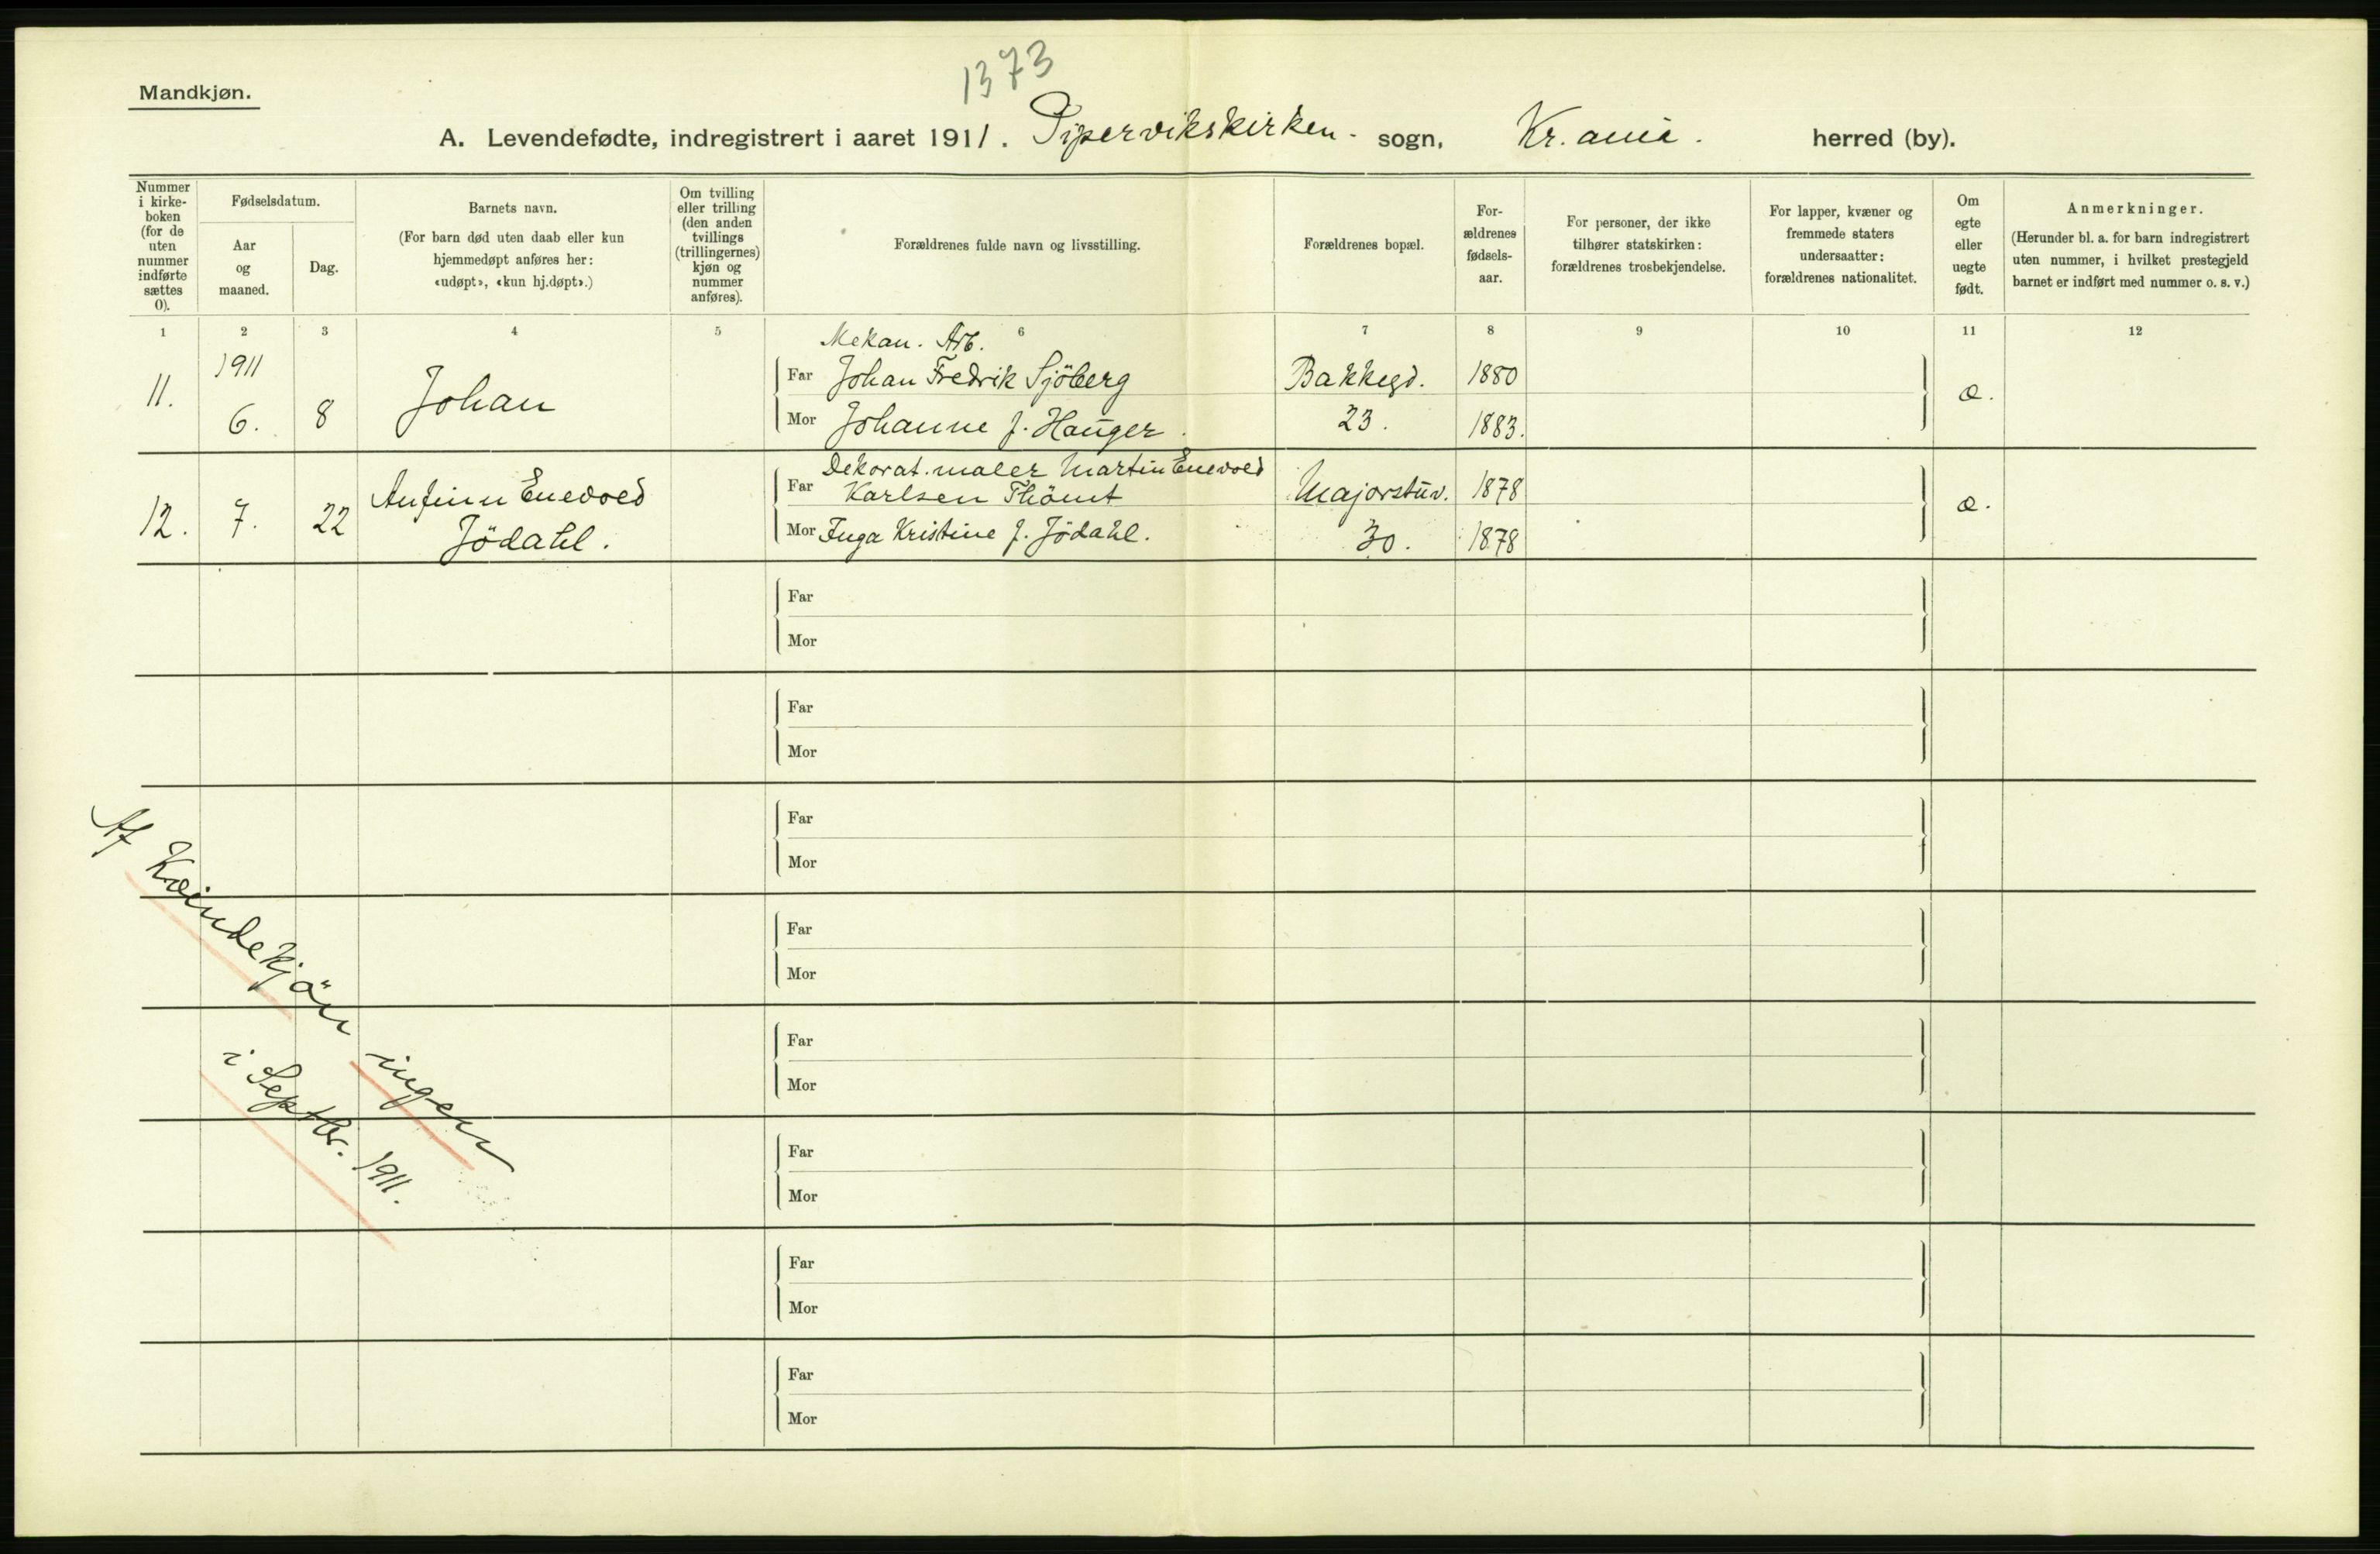 1373
Mandkjøn.
A. Levendefødte, indregistrert i aaret 1911. Pipervikskirken. sogn, Kr.ania. herred (by).
Nummer i kirke-boken (for de uten nummer indførte sættes 0).
Fødselsdatum.
Aar og maaned.
Dag.
Barnets navn.
(For barn død uten daab eller kun hjemmedøpt anføres her: «udøpt», «kun hj.døpt».)
Om tvilling eller trilling (den anden tvillings (trillingernes) kjøn og nummer anføres).
Forældrenes fulde navn og livsstilling.
Forældrenes bopæl.
For-ældrenes fødsels-aar.
For personer, der ikke tilhører statskirken: forældrenes trosbekjendelse.
For lapper, kvæner og fremmede staters undersaatter: forældrenes nationalitet.
Om egte eller uegte født.
Anmerkninger.
(Herunder bl. a. for barn indregistrert uten nummer, i hvilket prestegjeld barnet er indført med nummer o. s. v.)
1 2 3 4 5 6 7 8 9 10 11 12
Mekan. Arb.
1911 Far Johan Fredrik Sjöberg Bakkegd. 1880
11. 6. 8 Johan æ.
Mor Johanne f. Hauger. 23. 1883.
Dekorat.maler Martin Enevold
Anfinn Enevold Far Karlsen Thömt Majorstuv. 1878
12. 7. 22 æ.
Jödahl. Mor Inga Kristine f. Jödahl. 30. 1878
Far
Mor
Far
Mor
Far
Mor
Far
Mor
Far
Mor
Far
Mor
Far
Mor
Far
Mor
Af Kvindekjön ingen
i Septbr. 1911.